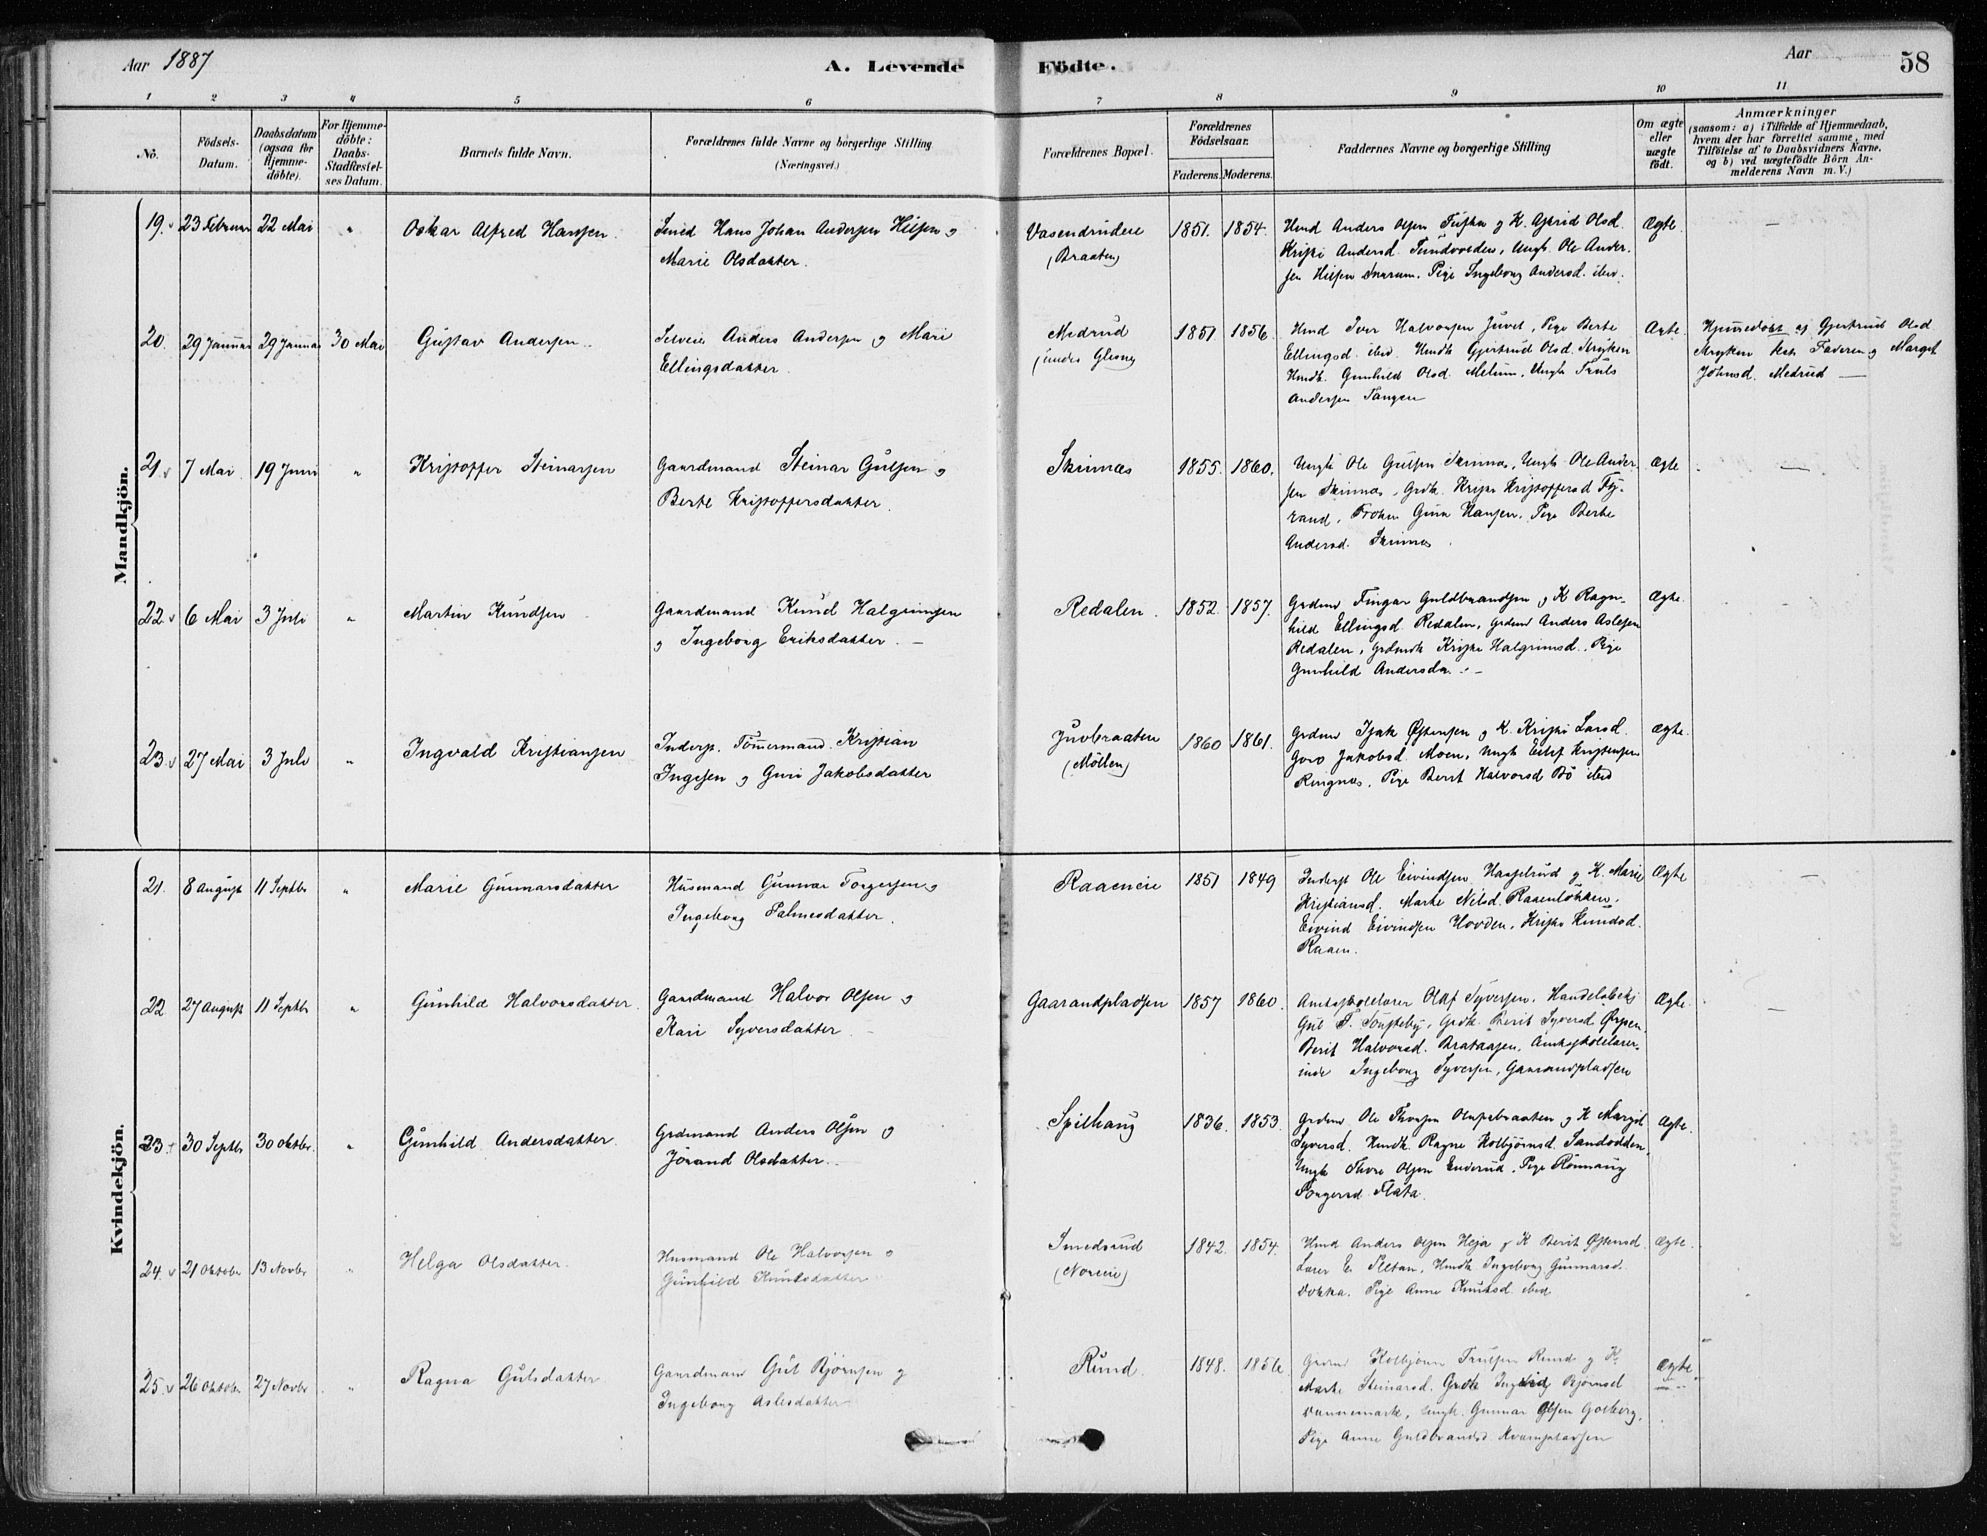 Aar 1887
A. Levende Födte.
Aar
58
1 2 3 4 5 6 7 8 9 10 11
No.
Födsels-Datum.
Daabsdatum (ogsaa for Hjemme-döbte).
For Hjemme-döbte: Daabs-Stadfæstel-ses Datum.
Barnets fulde Navn.
Forældrenes fulde Navne og borgerlige Stilling (Næringsvei).
Forældrenes Bopæl.
Forældrenes Födselsaar.
Faderens. Moderens.
Faddernes Navne og borgerlige Stilling
Om ægte eller uægte födt.
Anmærkninger
(saasom: a) i Tilfælde af Hjemmedaab, hvem der har forrettet samme, med Tilföielse af to Daabsvidners Navne, og b) ved uægtefödte Börn An-melderens Navn m. V.)
Mandkjön.
19. 23 Februar 22 Mai " Oskar Alfred Hansen. Smed Hans Johan Andersen Hilsen og
Marie Olsdatter.
Vasendrudeie
(Braaten)
1851. 1854.
Hmd Anders Olsen Tufta og K. Astrid Olsd.
Kristi Andersd. Sundvolden, Ungk. Ole Ander-
sen Hilsen Snarum, Pige Ingeborg Andersd. ibid.
Ægte. —
20. 29 Januar 29 Januar 30 Mai Gustav Andersen. Selveier Anders Andersen og Mari
Ellingsdatter.
Medrud
(under Glesne)
1851 1856.
Hmd Iver Halvorsen Juvet, Pige Berte
Ellingsd. ibid. Hmdk. Gjertrud Olsd. Stryken
Hmdk. Gunhild Olsd. Melum, Ungk. Truls
Andersen Tangen
Ægte.
Hjemmedøbt af Gjertrud Olsd
Stryken Faderen og Margit
Johnsd. Medrud —
21. 7 Mai 19 Juni " Kristoffer Steinarsen Gaardmand Steinar Gulsen og
Berte Kristoffersdatter.
Skinnes
1855. 1860.
Ungk. Ole Gulsen Skinnes, Ungk. Ole Ander-
sen Skinnes, Grdk. Kristi Kristoffersd Fy-
rand, Frøken Hansen, Pige Berte
Andersd. Skinnes.
Ægte —
22. 6 Mai 3 Juli " Martin Knudsen Gaardmand Knud Halgrimsen
og Ingeborg Eriksdatter. —
Redalen.
1852. 1857.
Grdmd Fingar Guldbrandsen og K Ragn-
hild Ellingsd. Redalen, Grdmd Anders Aslesen
Redalen, Grdmdk Kristi Halgrimsd., Pige
Gunhild Andersda. —
Ægte.
23. 27 Mai 3 Juli " Ingvald Kristiansen Inderst. Tömmermand Kristian
Ingesen og Guri Jakobsdatter
Juvbraaten
(Möllen)
1860 1861.
Grdmd Isak Østensen og K. Kristi Larsd.
Goro Jakobsd. Moen, Ungk Eilif Kristensen
Ringnes, Pige Berit Halvorsd Bö ibid
Ægte.
Kvindekjön.
21. 8 August 11 Septbr " Marie Gunnarsdatter Husmand Gunnar Torgersen og
Ingeborg Palmesdatter.
Raaeneie
1851 1849
Inderst Ole Eivindsen Hasselrud og K. Marie
Kristiansd. Marte Nilsd. Raaenløkken,
Eivind Eivindsen Hovden, Kristi Knudsd.
Raaen.
Ægte —
22 27 August 11 Septbr " Gunhild Halvorsdatter. Gaardmand Halvor Olsen og
Kari Syversdatter. —
Gaarandpladsen
1857 1860.
Amtsskolelærer Olaf Syversen, Handelsbetj
Gul T. Grdk. Berit Syversd Ørpen
Berit Halvorsd. Brataasen, Amtsskolelærer-
inde Ingeborg Syversen, Gaarandpladsen
Ægte. —
23. 30 Septbr 30 Oktober. " Gunhild Andersdatter. Grdmand Anders Olsen og
Jörand Olsdatter. —
Spilhaug
1836. 1853.
Grdmd Ole Thorsen Olupsbraaten og K Margit
Syversd. Hmdk. Ragne Kolbjørnsd. Sandodden,
Ungk Thore Olsen Enderud, Pige Rönnaug
Torgersd Flata.
Ægte.
24. 21 Oktober 13 Novbr " Helga Olsdatter. Husmand Ole Halvorsen og
Gunhild Knutsdatter
Smedsrud
(Noreie)
1842. 1854.
Hmd Anders Olsen Heja og K Berit Østensd.
Lærer E. Pletan, Hmdk. Ingeborg Gunnarsd.
Dokka. Pige Anne Knutsd. ibid
Ægte.
25. 26 Oktober 27 Novbr " Ragna Gulsdatter. Gaardmand Gul Bjørnsen og
Ingeborg Aslesdatter
Rund.
1848. 1856.
Grdmd Kolbjørn Trulsen Rund og K.
Marte Steinarsd. Grdk Ingrid Bjørnsd
Dannemark, Ungk. Gunnar Olsen Golberg,
Pige Anne Guldbrandsd. Kvernpladsen
Ægte.